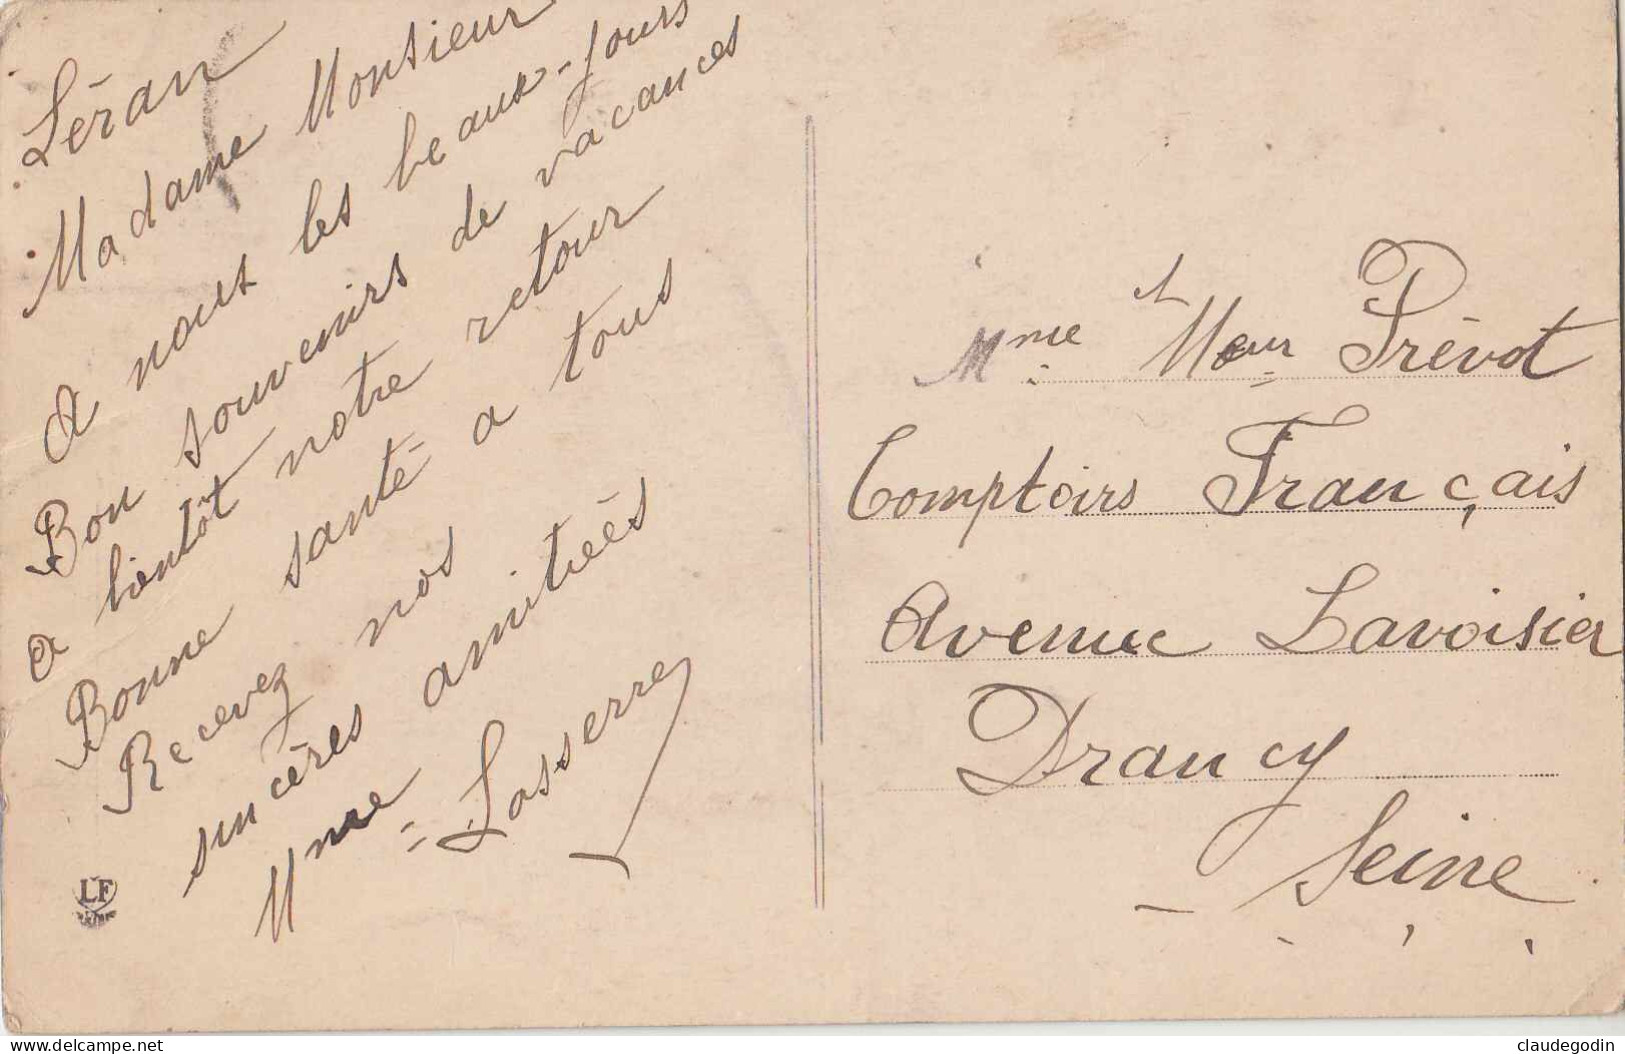 Léran
Madame Monsieur
A nous les beaux-jours
Bon souvenirs de vacances
a bientôt notre retour
Bonne santé a tous
Recevez nos
sincères amitiées
Mme Lasserre
LF
Mme et Meur Prévot
Comptoirs Français
Avenue Lavoisier
Drancy
Seine
delcampe.net
claudegodin